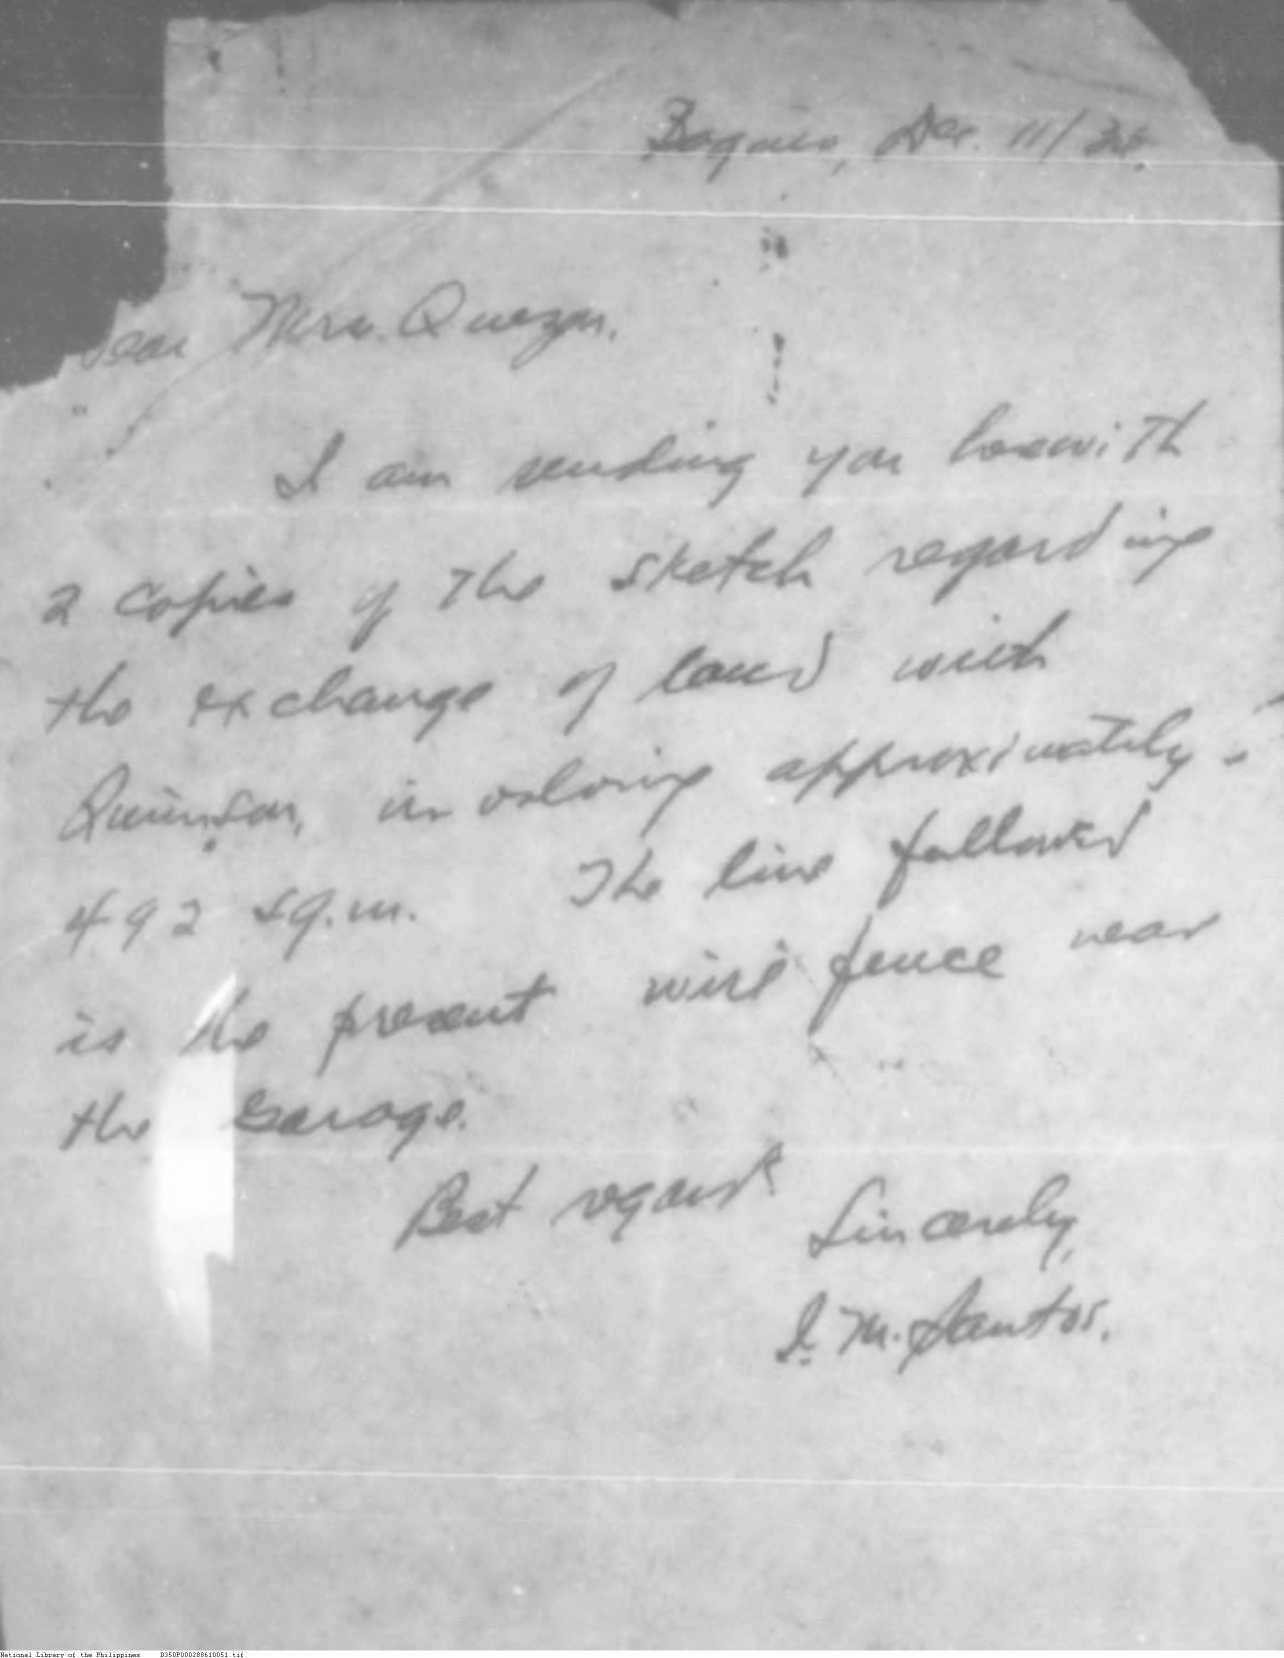 Baguio, Dec. 11/
Dear Mrs. Quezon,
I am sending you herewith
2 copies of the sketch regarding
the exchange of land with
involving approximately
492 sq.m. The line followed
is the present wire fence near
the Garage.
Best regards
Sincerely,
M. Santos.
National Library of the Philippines D350P000288610051.tif